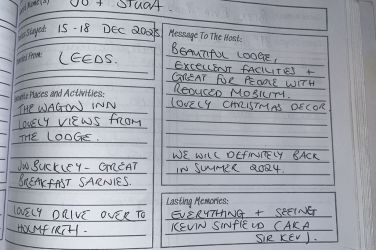 Name(s)
JO + STUART.
Stayed: 15-18 DEC 2023
Message To The Host:
BEAUTIFUL LODGE,
EXCELLENT FACILITIES +
GREAT FOR PEOPLE WITH
REDUCED MOBILITY.
LOVELY CHRISTMAS DECOR
WE WILL DEFINITELY BACK
IN SUMMER 2024.
From: LEEDS.
Places and Activities:
THE WAGON INN
LOVELY VIEWS FROM
THE LODGE.
J.W.BUCKLEY - GREAT
BREAKFAST SARNIES.
LOVELY DRIVE OVER TO
HOLMFIRTH.
Lasting Memories:
EVERYTHING + SEEING
KEVIN SINFIELD (AKA
SIR KEV).